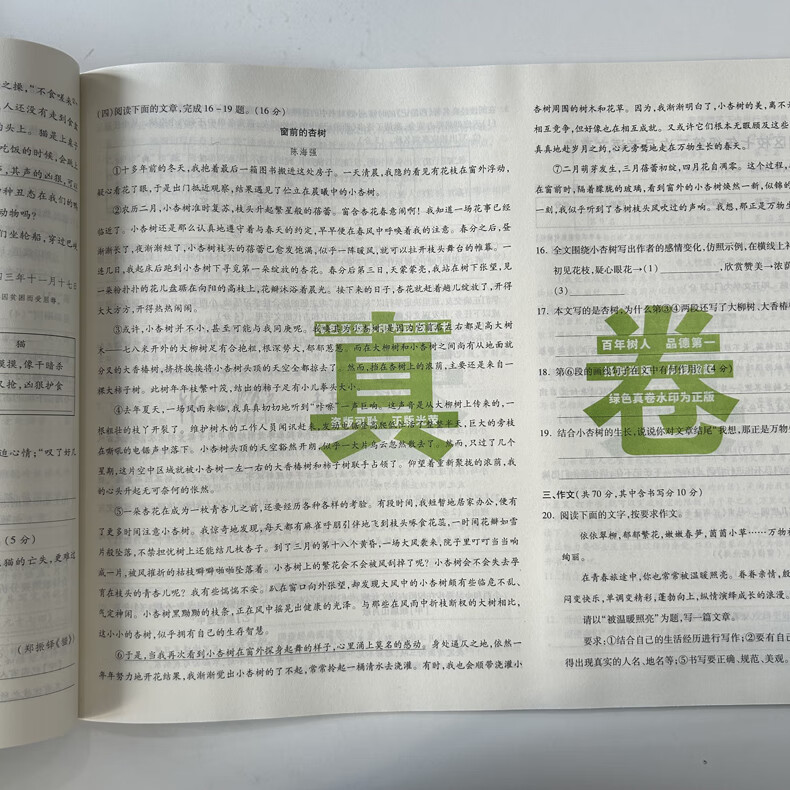 之操，“不食嗟来
人还没有走到食盆
的头上。猫是上桌子
吃饭的时候，会跳上
声，其声的凶狠，
种丑态在我们的
动物吗？
们坐轮船，穿过巴
四三年十一月十七日
猫
摸摸，像干暗杀
又抢，凶狠护食
迫心情；“叹了好几
（5 分）
猫的亡失，更难过
（郑振铎《猫》）
（四）阅读下面的文章，完成 16－19 题。（16 分）
窗前的杏树
陈海强
①十多年前的冬天，我抱着最后一箱图书搬进这处房子。一天清晨，我隐约看见有花枝在窗外浮动，
疑心看花了眼，于是出门抵近观察，结果遇见了伫立在晨曦中的小杏树。
②农历二月，小杏树准时复苏，枝头升起繁星般的蓓蕾。窗含杏花春意闹啊！我知道一场花事已经
临近了。小杏树还是那么认真地遵守着与春天的约定，早早便在春风中呼唤着我的注意。春分之后，昼
渐渐长了，我渐渐短了，小杏树枝头的蓓蕾已愈发饱满，似乎一阵暖风，就可以拉开枝头舞台的帷幕。一
连几日，我起床后跑到小杏树下寻觅第一朵绽放的杏花。春分后第三日，天蒙蒙亮，我站在树下张望，见
一朵粉扑扑的花儿盘踞在向阳的高枝上，花瓣沐浴着晨光。接下来的日子，杏花就赶着趟儿绽放了，开得
大大方方，开得热热闹闹。
③或许，小杏树并不小，甚至可能与我同庚呢。我唤其为小杏树，是因为宫前屋左右都是高大树
木——七八米开外的大柳树足有合抱粗，根深势大，郁郁葱葱。而在大柳树和小杏树之间尚有从地面就
分叉的大香椿树，挤挤挨挨将小杏树头顶的天空全都掠去了。然而，拾在杏树上的浓荫，主要还是来自一
棵大柿子树。此树年年枝繁叶茂，结出的柿子足有小儿拳头大小。
④去年夏天，一场风雨来临，我真真切切地听到“咔嚓”一声巨响。这声音是从大柳树上传来的，一
根粗壮的枝丫开裂了。维护树木的工作人员闻讯赶来，发动电锯登高爬低忙活了整整半天，巨大的旁枝
在嘶吼的电锯声中落下。小杏树头顶的天空豁然开朗，似乎一大片乌云忽然散去了。然而，只过了几个
星期，这片空中区域就被小杏树一左一右的大香椿树和柿子树联手占领了。仰望着重新聚拢的浓荫，我
的心头升起无可奈何的怅然。
⑤一朵杏花在成为一枚青杏儿之前，还要经历各种各样的考验。有段时间，我短暂地居家办公，便有
了更多时间注意小杏树。我惊奇地发现，每天都有麻雀呼朋引伴地飞到枝头啄食花蕊，一时间花瓣如雪
片般坠落，不禁担忧树上还能结几枚杏子。到了三月的第十八个黄昏，一场大风袭来，院子里叮叮当当响
成一片，被风摧折的枯枝噼噼啪啪坠落着。小杏树上的繁花会不会被风刮掉了呢？小杏树会不会失去孕
育在枝头的青杏儿呢？我有些惴惴不安。趴在窗口向外张望，却发现大风中的小杏树颇有些临危不乱、
气定神闲。小杏树黑黝黝的枝条，正在风中摇晃出健康的光泽。与那些在风雨中折枝断杈的大树相比，
这小小的杏树，似乎拥有自己的生存智慧。
⑥于是，当我再次看到小杏树在窗外探身起舞的样子，心里涌上莫名的感动。身处逼仄之地，依然一
年年努力地开花结果，我渐渐觉出小杏树的了不起，常常拎起一桶清水去浇灌。有时，我也会顺带浇灌小
杏树周围的树木和花草。因为，我渐渐明白了，小杏树的美，离不
相互竞争，但好像也在相互成就。又或许它们根本无暇顾及这些
真真地赴岁月之约，心无旁骛地走在万物生长的春天。
⑦二月萌芽发生，三月蓓蕾初绽，四月花自凋零。这个过程，
在窗前时，隔着朦胧的玻璃，看到窗外的小杏树焕然一新，似锦的
一刻，我似乎听到了杏树枝头风吹过的声响。我想，那正是万物生
16. 全文围绕小杏树写出作者的感情变化，仿照示例，在横线上补
初见花枝，疑心眼花→（1），欣赏赞美→浓荫
（3）
17. 本文写的是杏树，为什么第③④两段还写了大柳树、大香椿树
18. 第⑥段的画线句子在文中有何作用？（4 分）
19. 结合小杏树的生长，说说你对文章结尾“我想，那正是万物
三、作文（共 70 分，其中含书写分 10 分）
20. 阅读下面的文字，按要求作文。
依依翠柳，郁郁繁花，嫩嫩春笋，茵茵小草……万物
绚丽。
在青春旅途中，你也常常被温暖照亮。眷眷亲情，殷
闷变快乐，单调变精彩，蓬勃向上，纵情演绎成长的浪漫。
请以“被温暖照亮”为题，写一篇文章。
要求：①结合自己的生活经历进行写作；②要有自己
得出现真实的人名、地名等；⑤书写要正确、规范、美观。
真
卷
百年树人 品德第一
绿色真卷水印为正版